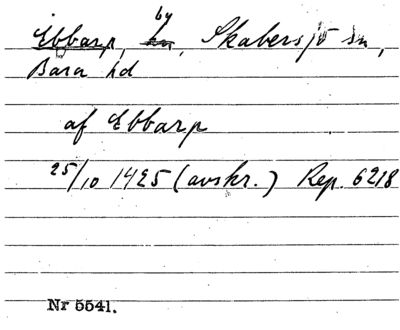 Ebbarp, by, Skabersjö sn,
Bara hd
af Ebbarp
25/10 1425 (avskr.) Rep. 6218
Nr 5541.